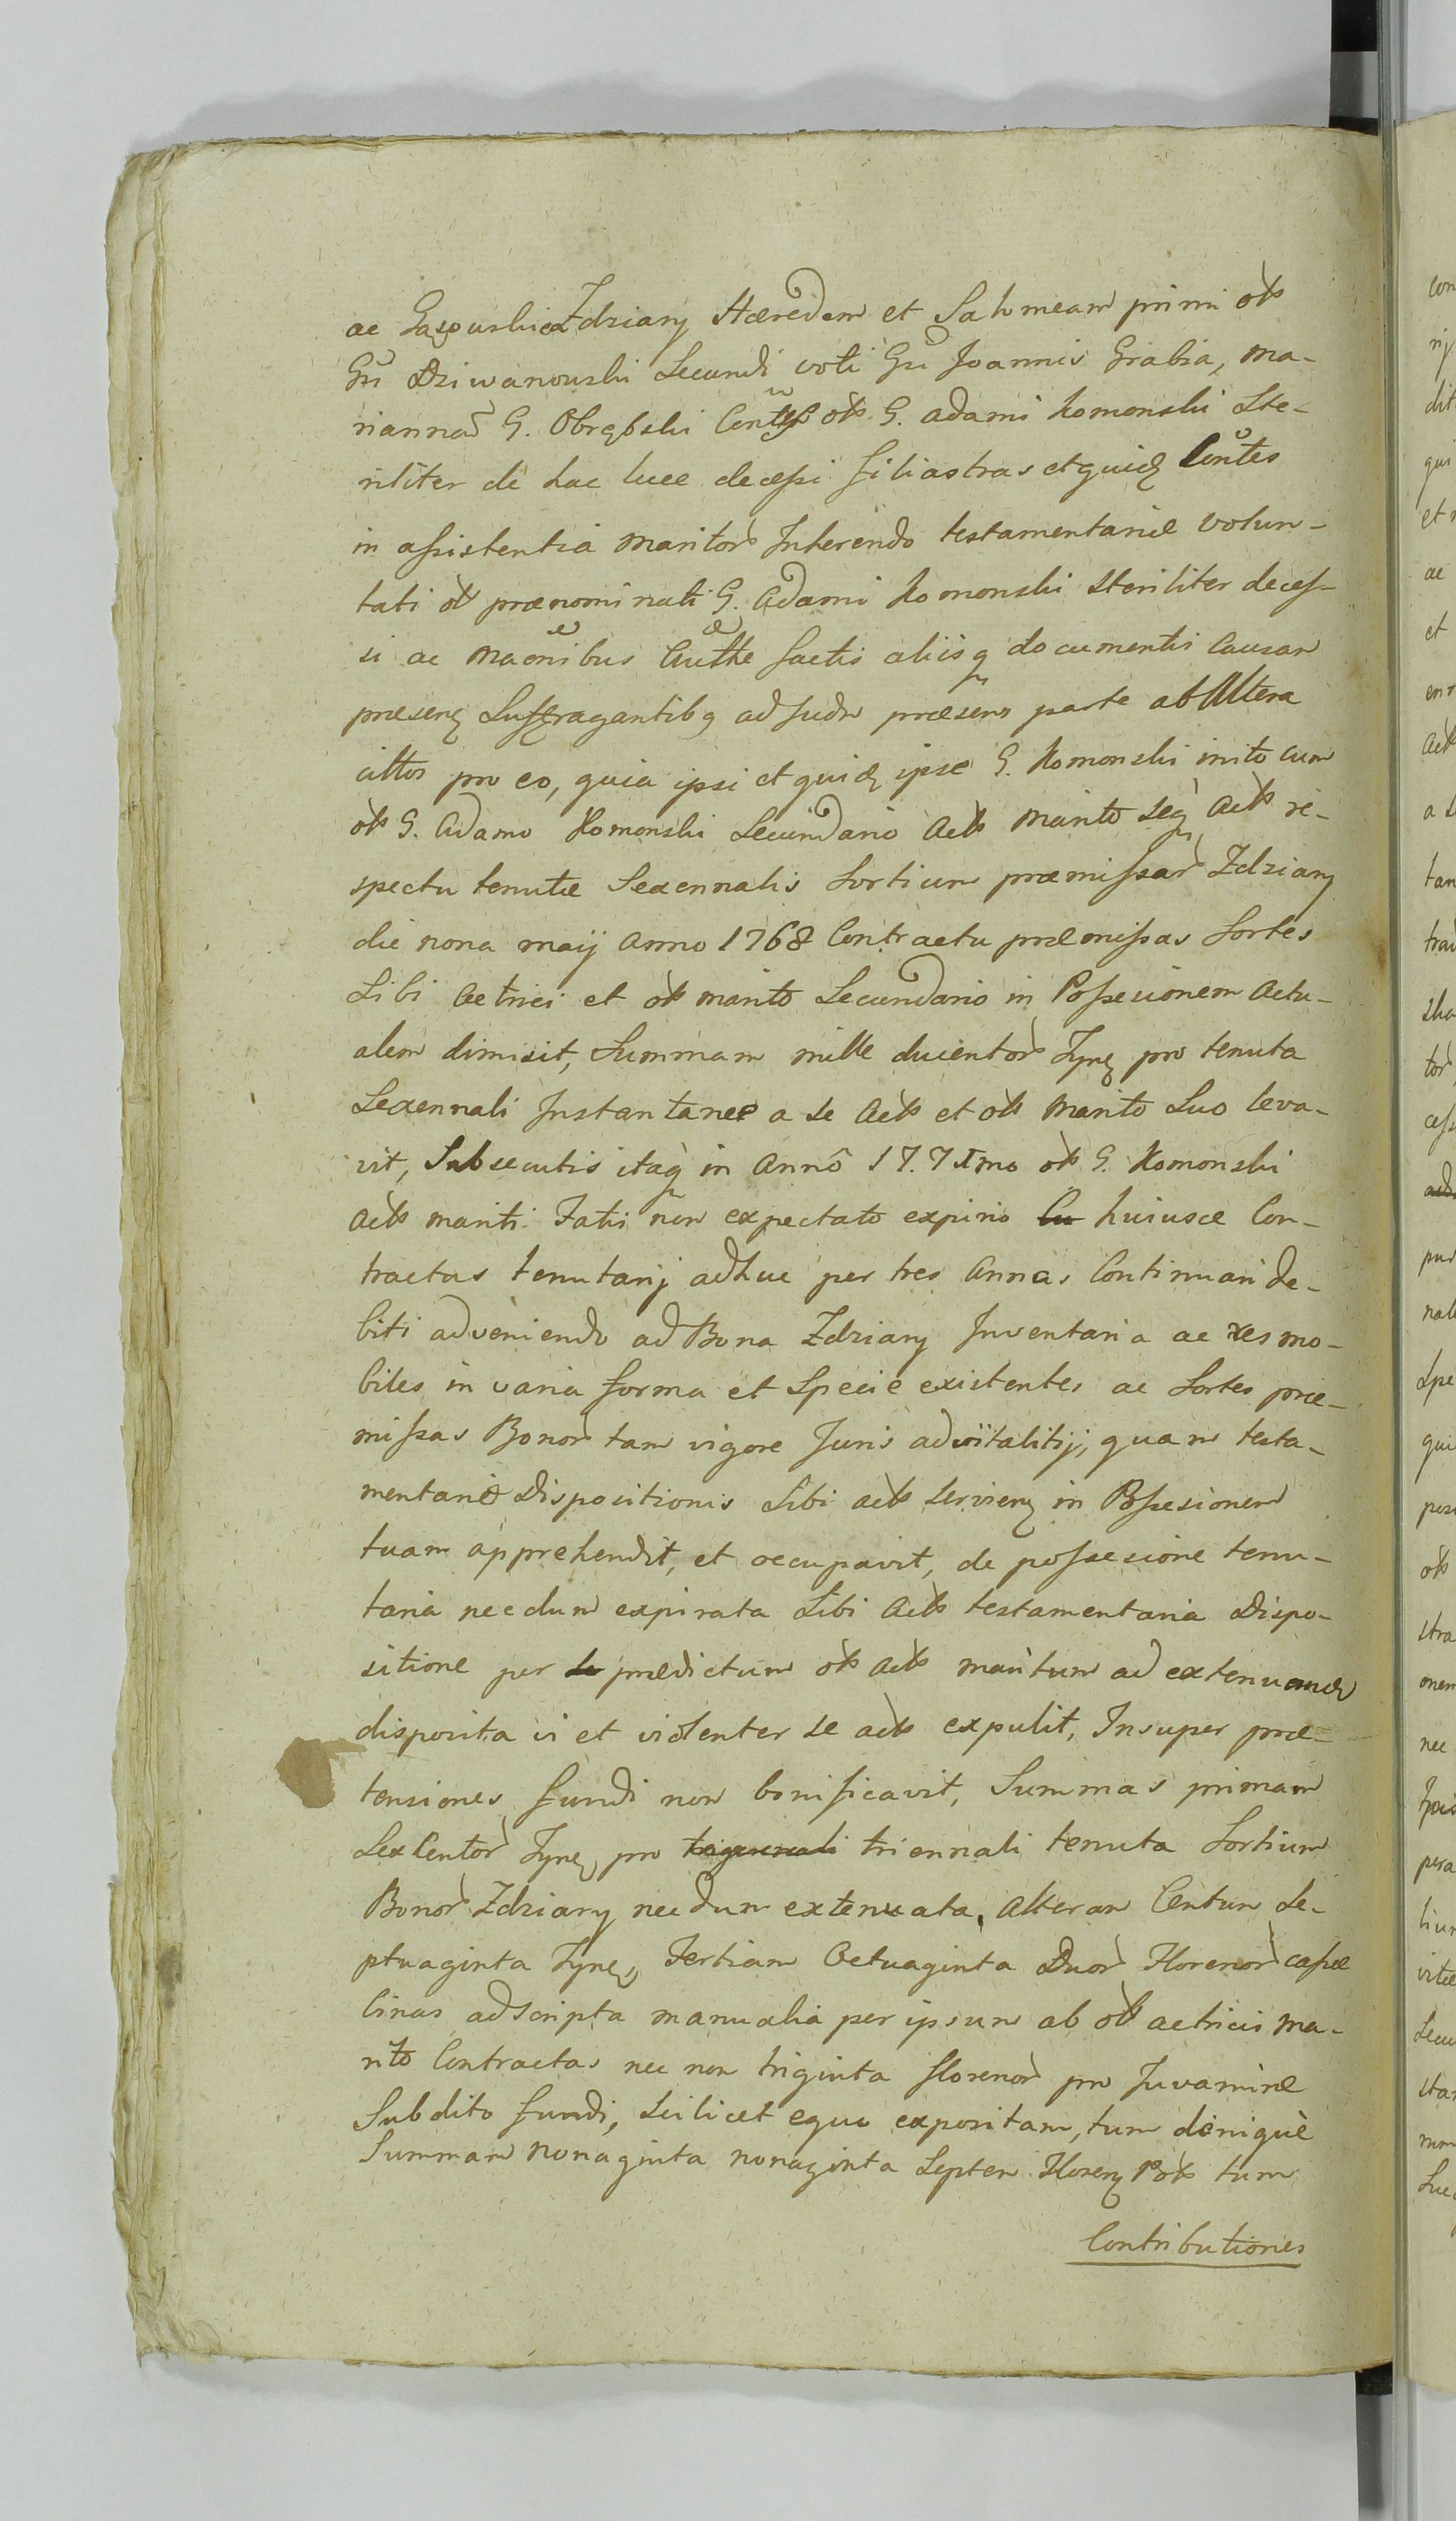 ae Gaspurhiea Zdziary Hæredem et Salomeam primi ols
Gsi Dziwanowski Secundi voti Gsi Joannis Grabia, Ma-
riannam G. Obrębski Contes ols G. Adami Komonski Ste-
riliter de hac luce decessi filiastras et quidē Contes
in assistentia maritor Inherendo testamentariæ volun-
tati ol prænominati G. Adami Komonski Steriliter deces-
si ac Maonibus Authe factis aliisq documentis Causam
præsenē Suffragantibq ad Judm præsens parte ab Altera
cittos pro eo, quia ipsi et quidē ipse G. Komonski inito cum
ols G. Adamo Komonski Secundario Acts Marito seq Acts re-
spectu tenutæ Sexennalis Sortium præmissar Zdziary
die nona maij Anno 1768 Contractu præmissas Sortes
Sibi Actrici et ols marito Secundario in Possesionem Actu-
alem dimisit, Summam mille ducentor Tynē pro tenuta
Sexennali Instantanee a se Acts et ols Marito Suo leva-
vit, Subsecutis itaq in Anno 17.71mo ols G. Komonski
Acts mariti Fatis non expectato expirio Cu huiusce Con-
tractus tenutarij adhuc per tres Annas Continuari de-
biti adveniendo ad Bona Zdziary Inventaria ac res mo-
biles in varia forma et Specie existentes ac Sortes præ-
missas Bonor tam vigore Juris advitalitij, quam testa-
mentariæ Dispositionis Sibi acts servienē in Possesionem
tuam apprehendit, et occupavit, de possesione tenu-
taria necdum expirata Sibi Acts testamentaria Dispo-
sitione per se prædictum ols Acts maritum ad extenuand
disposita vi et violenter se acts expulit, Insuper præ-
tensiones fundi non bonificavit, Summas primam
SexCentor Tynē pro triennali tenuta Sortium
Bonor Zdziary necdum extenuata, Alteram Centum Se-
ptuaginta Tynē, Tertiam Octuaginta Duor Florenor capæ
linas adscripta manualia per ipsum ab ols actricis ma-
rito Contractas nec non triginta florenor pro Juvamine
Subdito fundi, scilicet equo expositam, tum denique
Summam nonaginta nonaginta Septem Florenē Pols tum
Contributiones